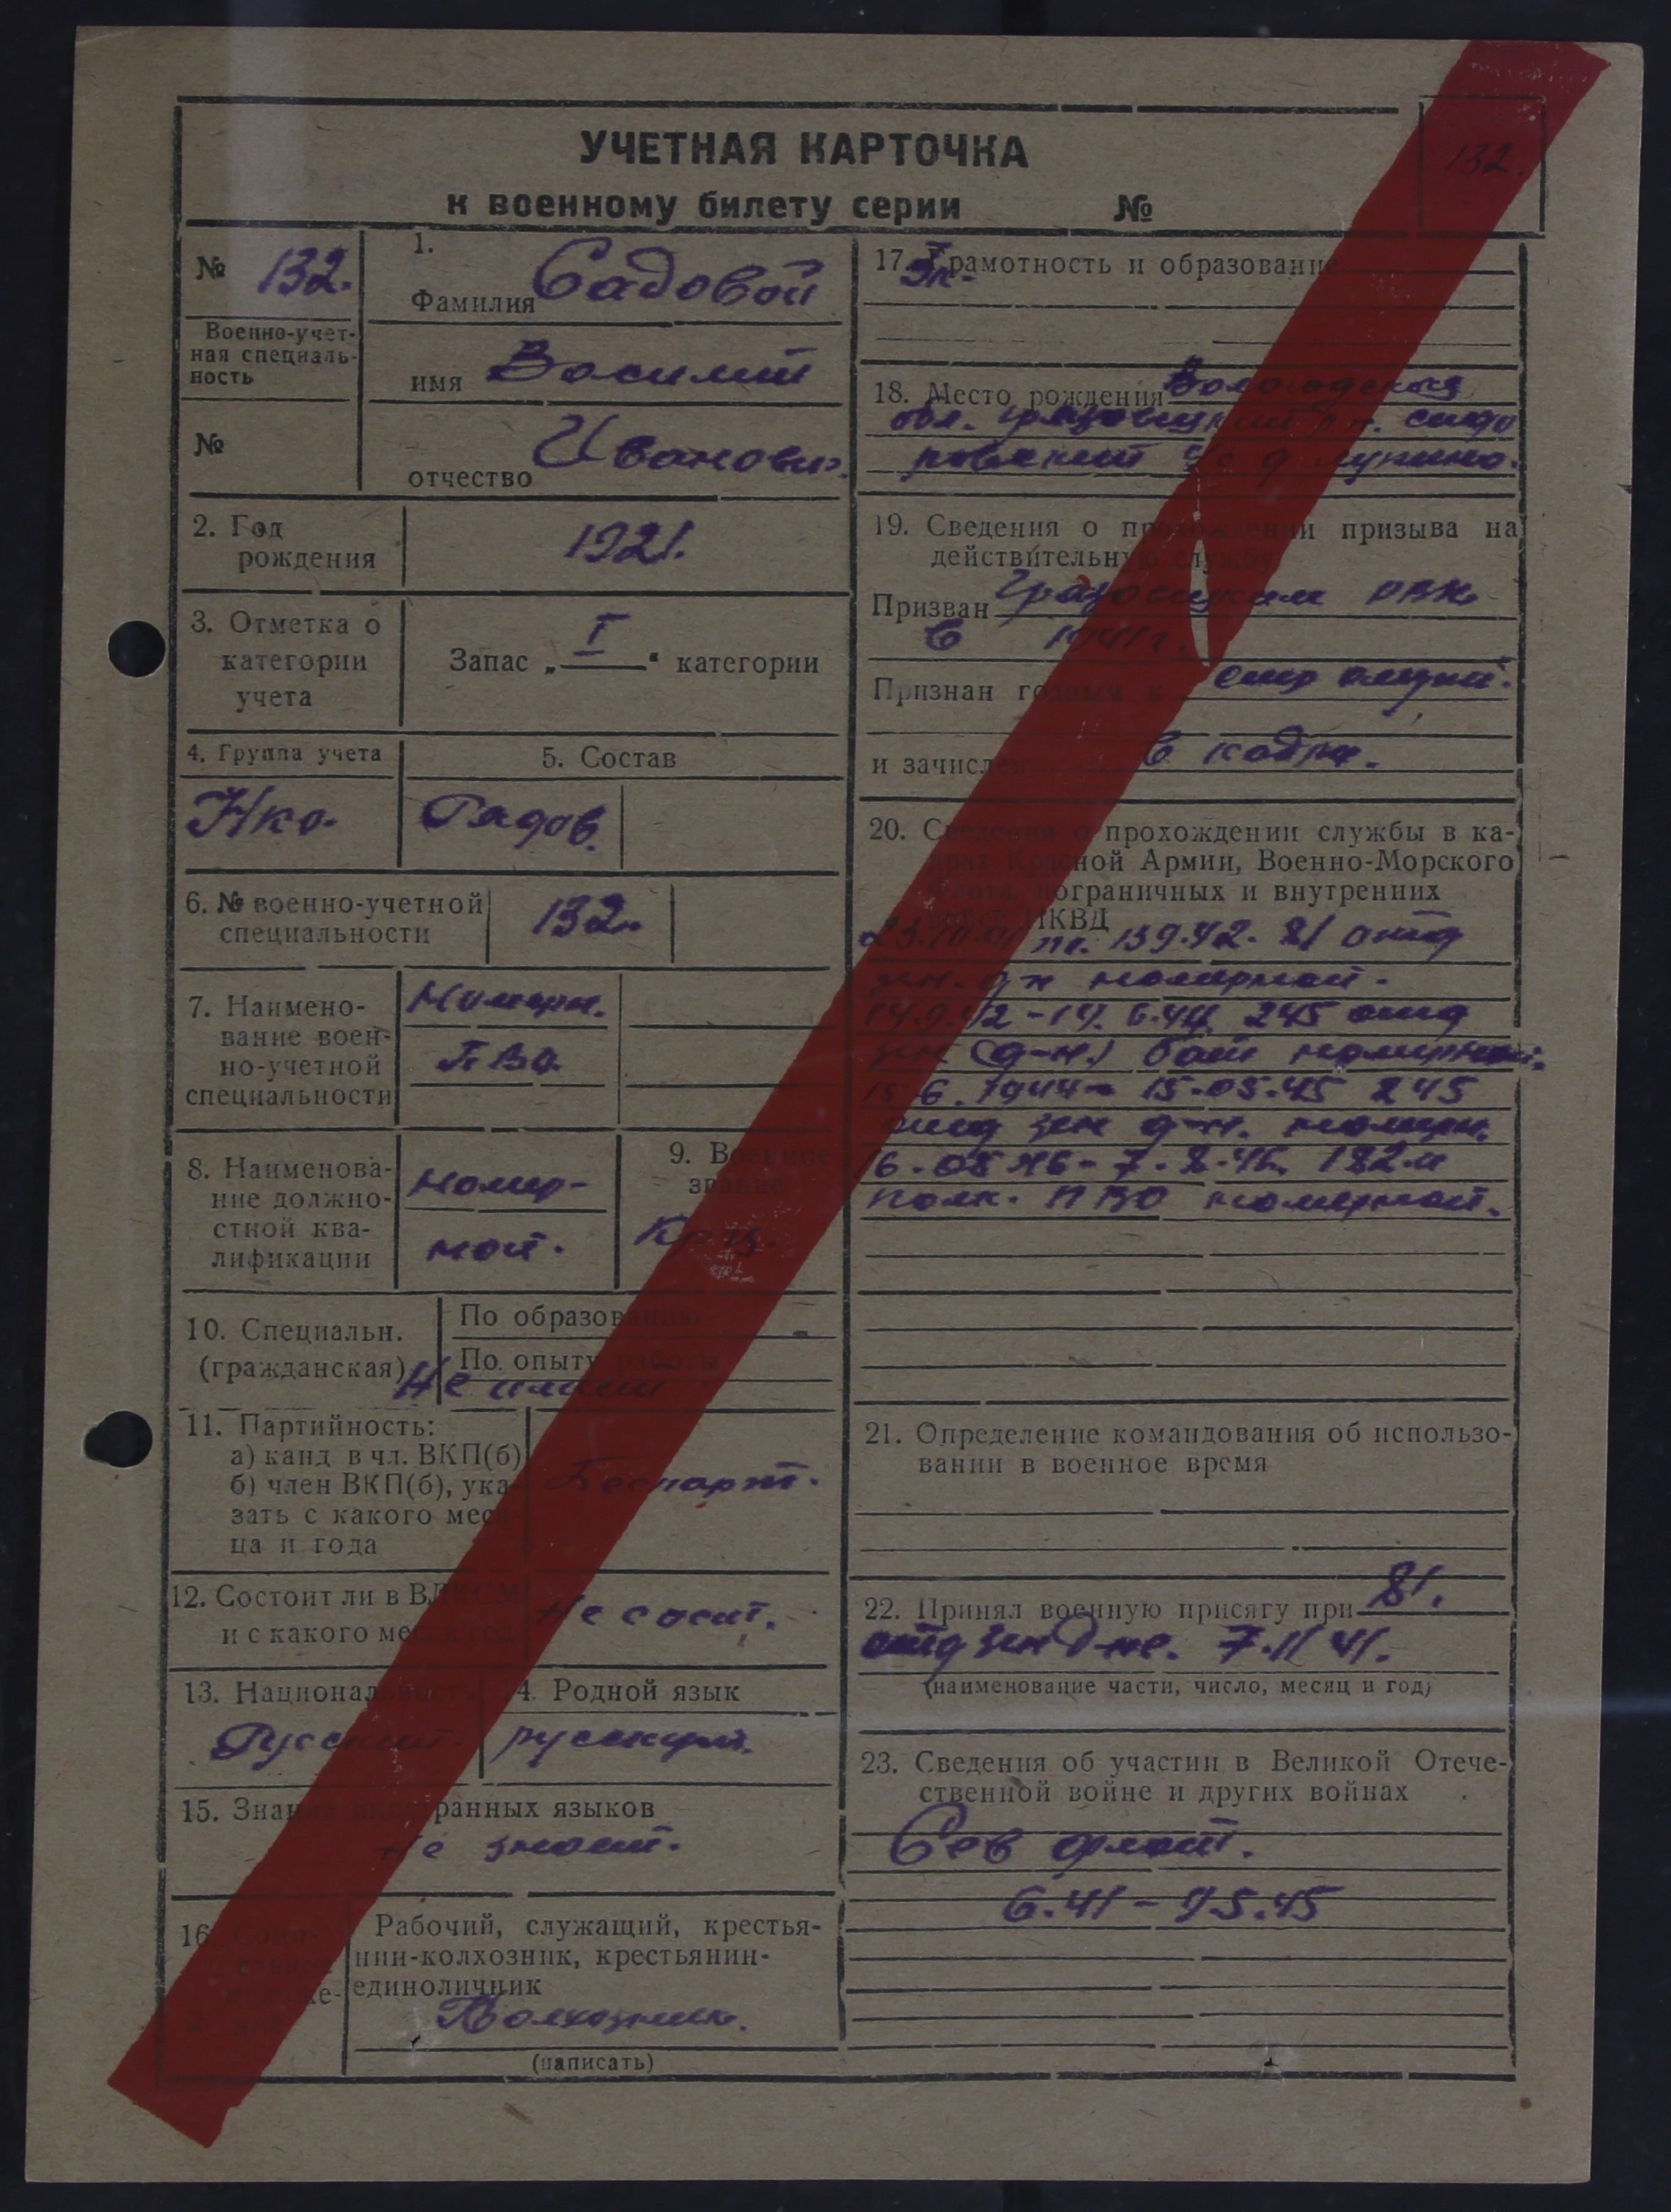 132.
УЧЕТНАЯ КАРТОЧКА
к военному билету серии №
№ 132.
Военно-учет-
ная специаль-
ность
№
1.
Фамилия Садовой
имя Василий
отчество Иванович.
2. Год
рождения
1921.
3. Отметка о
категории
учета
Запас „ I “ категории
4. Группа учета
Нко.
5. Состав
Рядов.
6. № военно-учетной
специальности
132.
7. Наимено-
вание воен-
но-учетной
специальности
Номерн.
ПВО.
8. Наименова-
ние должно-
стной ква-
лификации
номер-
ной.
9. Военное
звание
10. Специальн.
(гражданская)
По образованию
По опыту работы
Не имеет
11. Партийность:
а) канд. в чл. ВКП(б)
б) член ВКП(б), ука-
зать с какого меся-
ца и года
Беспарт.
12. Состоит ли в ВЛКСМ
и с какого мес. и год.
Не сост.
13. Национальность
Русский.
14. Родной язык
русский.
15. Знание иностранных языков
Не знает.
16. Соци-
альное
положе-
ние
Рабочий, служащий, крестья-
нин-колхозник, крестьянин-
единоличник
Колхозник.
(написать)
17. Грамотность и образование
18. Место рождения Вологодская
обл. Грязовецкий р-н. Сидо
ровский с/с д
19. Сведения о прохождении призыва на
действительную службу
Призван Грязовецким РВК
в 1941 г.
Признан годным к стр службе.
и зачислен в кадры.
20. Сведения о прохождении службы в ка-
драх Красной Армии, Военно-Морского
Флота, пограничных и внутренних
войск НКВД
по. 13 9.42. 81 отд
зен. д-н номерной.
14.9.42 - 14. 6.44. 245 отд
зен (д-н) бат номерной.
15 6. 1944 - 15-05.45 245
отд зен д-н. номерн.
полк. ПВО номерной.
21. Определение командования об использо-
вании в военное время
22. Принял военную присягу при 81.
отд зен д-не. 7.11 41.
(наименование части, число, месяц и год)
23. Сведения об участии в Великой Отече-
ственной войне и других войнах
Сев флот.
6.41 - 9.5.45